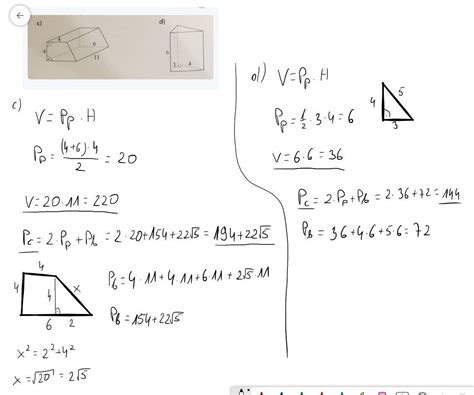 c)
d)
4
4
6
11
6
3
4
c)
V = Pp · H
Pp = (4+6)·4 / 2 = 20
V = 20·11 = 220
Pc = 2·Pp + Pb = 2·20 + 154 + 22√5 = 194 + 22√5
4
4
4
x
6
2
x² = 2² + 4²
x = √20 = 2√5
Pb = 4·11 + 4·11 + 6·11 + 2√5·11
Pb = 154 + 22√5
d)
V = Pp · H
Pp = 1/2 · 3·4 = 6
4
5
3
V = 6·6 = 36
Pc = 2·Pp + Pb = 2·36 + 72 = 144
Pb = 36 + 4·6 + 5·6 = 72